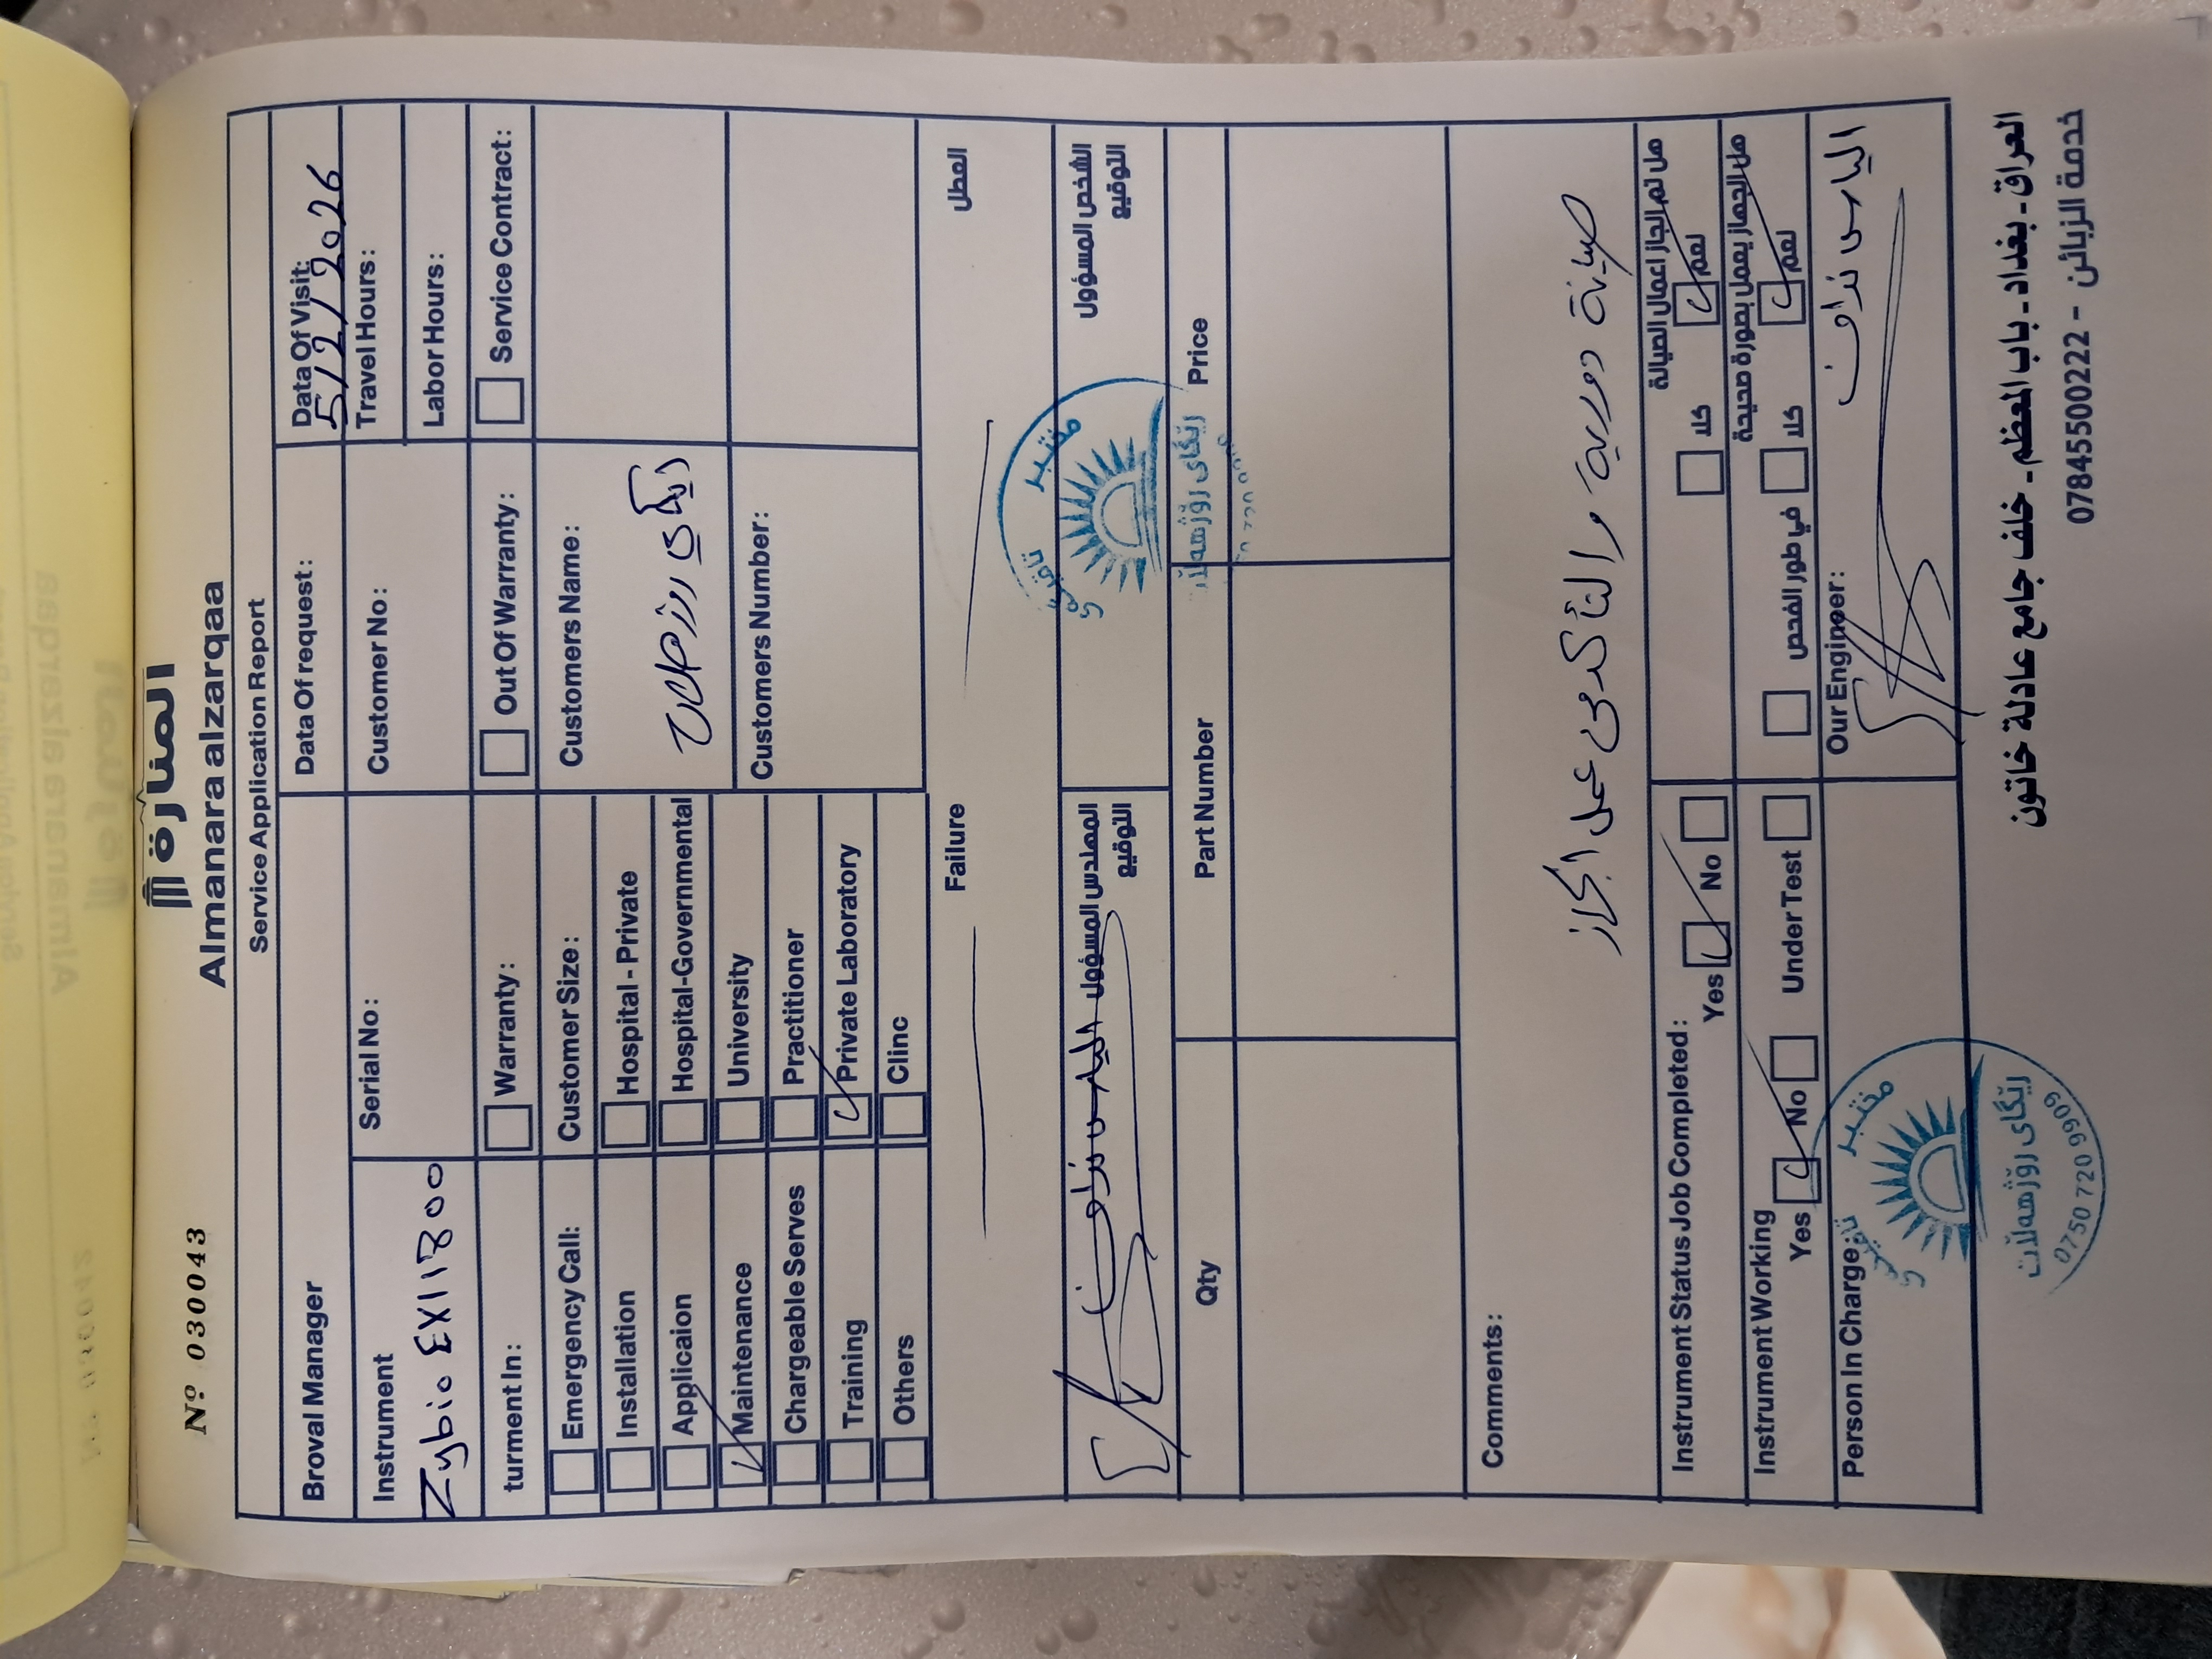 المنارة
Nº 030043
Almanara alzarqaa
Service Application Report
Broval Manager
Data Of request:
Data Of Visit:
5/2/2026
Instrument
Zybio EXI1800
Serial No:
Customer No:
Travel Hours:
Labor Hours:
turment In:
Warranty:
Out Of Warranty:
Service Contract:
Emergency Call:
Customer Size:
Customers Name:
Installation
Hospital - Private
Applicaion
Hospital-Governmental
Maintenance
University
Customers Number:
Chargeable Serves
Practitioner
Training
Private Laboratory
Others
Clinc
Failure
العطل
المهندس المسؤول
التوقيع
الشخص المسؤول
التوقيع
مختبر
ریگای رۆژهەڵات
Qty
Part Number
Price
Comments:
صيانة دورية و التأكد من عمل الجهاز
Instrument Status Job Completed:
Yes
No
هل تم انجاز اعمال الصيانة
كلا
نعم
Instrument Working
Yes
No
Under Test
هل الجهاز يعمل بصورة صحيحة
في طور الفحص
كلا
نعم
Person In Charge:
Our Engineer:
مختبر
ریگای رۆژهەڵات
0750 720 9909
العراق - بغداد - باب المعظم - خلف جامع عادلة خاتون
خدمة الزبائن - 07845500222